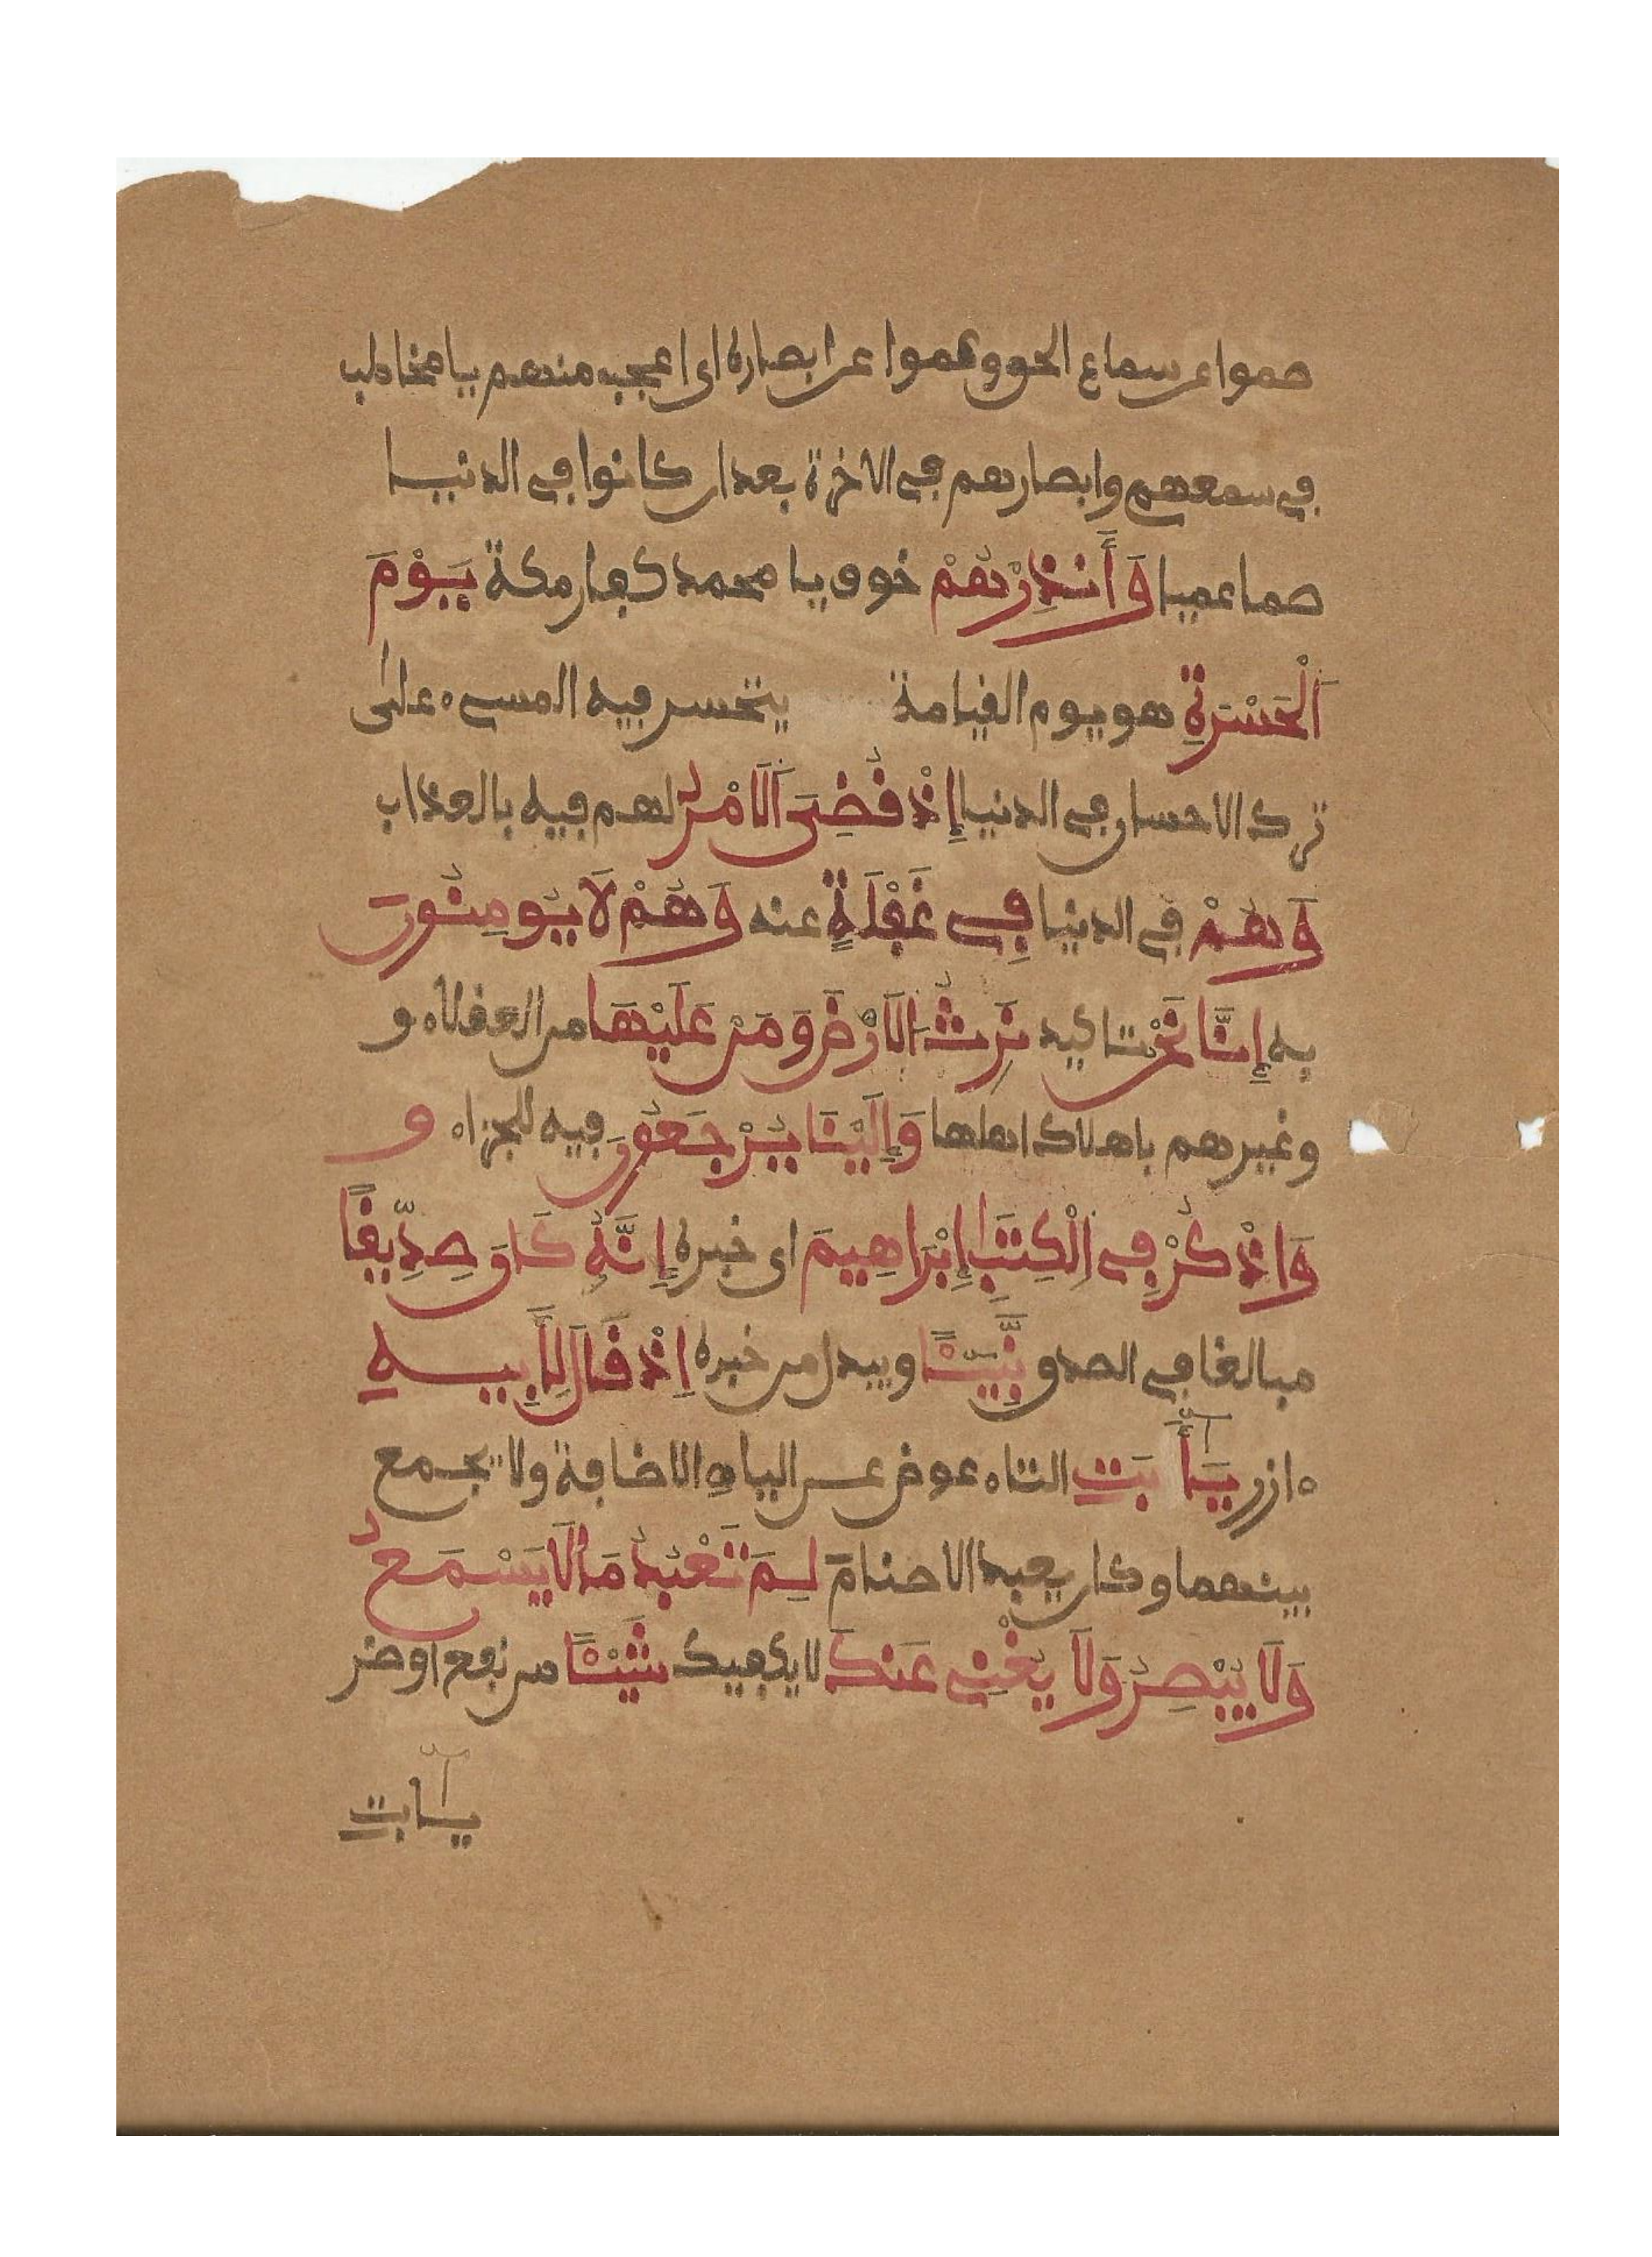 صموا عن سماع الحق وعموا عن ابصاره اى اعجب منهم يا مخاطب
في سمعهم وابصارهم في الاخرة بعد ان كانوا في الدنيا
صما عميا وَأَنذِرْهُمْ خوف يا محمد كفار مكة يَوْمَ
اَلْحَسْرَةِ هو يوم القيامة يتحسر فيه المسىء على
ترك الاحسان في الدنيا إِذْ قُضِىَ اَلَامْرُ لهم فيه بالعذاب
وَهُمْ في الدنيا فِى غَفْلَةٍ عنه وَهُمْ لَا يُومِنُونَ
به إِنَّا نَحْنُ تاكيد نَرِثُ الَارْضَ وَمَنْ عَلَيْهَا من العقلاء و
وغيرهم باهلاك اهلها وَإِلَيْنَا يُرْجَعُونَ فيه للجزاء و
وَاذْكُرْ فِى اِلْكِتَٰبِ إِبْرَاهِيمَ اى خبره إِنَّهُ كَانَ صِدِّيقًا
مبالغا في الصدق نَّبِيـًٔا ويبدل من خبره اِذْ قَالَ لِأَبِيهِ
ءازر يَٰٓأَبَتِ التاء عوض عن الياء الاضافة ولا يجمع
بينهما وكان يعبد الاصنام لِمَ تَعْبُدُ مَا لَا يَسْمَعُ
وَلَا يُبْصِرُ وَلَا يُغْنِى عَنكَ لا يكفيك شَيْـًٔا من نفع اوضر
يٰٓابت